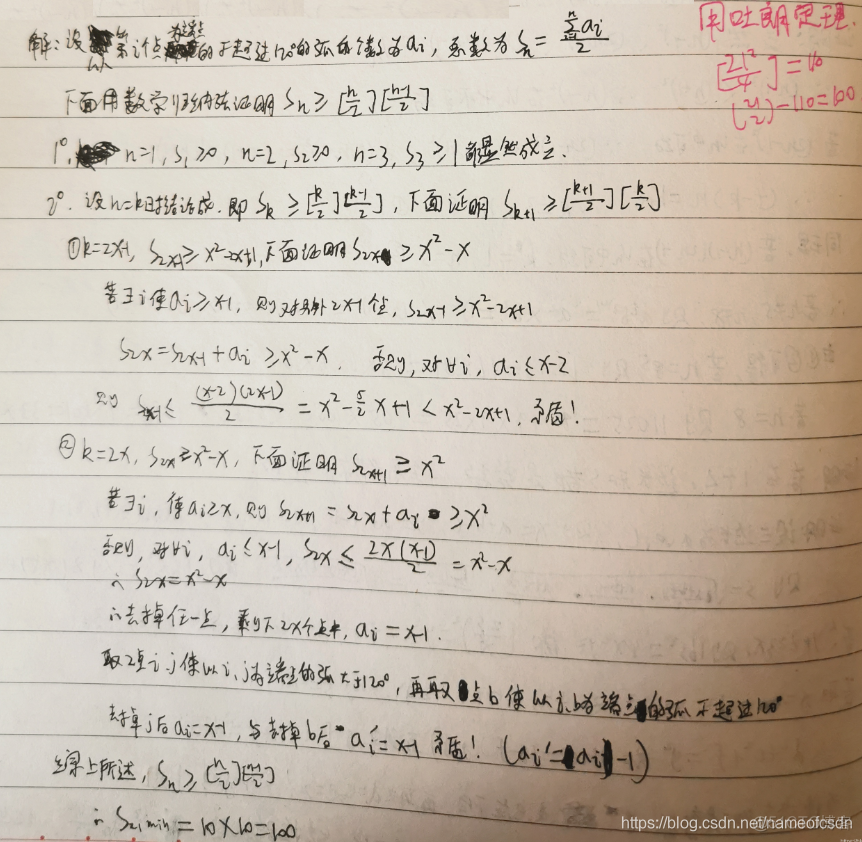 解:设第i个点为端点的不超过120°的弧的个数为ai,总数为Sn = Σai/2
用吐朗定理
[21²/4]=110
(21 2)-110=100
下面用数学归纳法证明 Sn ≥ [n/2][(n-1)/2]
1°. n=1, S1≥0, n=2, S2≥0, n=3, S3≥1 都显然成立.
2°. 设n=k时结论成立. 即 Sk ≥ [k/2][(k-1)/2], 下面证明 Sk+1 ≥ [(k+1)/2][k/2]
①k=2x-1, S2x-1≥x²-2x+1, 下面证明 S2x ≥ x²-x
若∃i使ai≥x-1, 则对另外2x-1个点, S2x-1≥x²-2x+1
S2x=S2x-1+ai≥x²-x. 否则, 对∀i, ai≤x-2
则 S2x-1≤ (x-2)(2x-1)/2 = x²-5/2x+1 < x²-2x+1, 矛盾!
②k=2x, S2x≥x²-x, 下面证明 S2x+1 ≥ x²
若∃i, 使ai≥x, 则 S2x+1 = S2x+ai ≥x²
否则, 对∀i, ai≤x-1, S2x ≤ 2x(x-1)/2 = x²-x
∴S2x=x²-x
∴去掉任一点, 剩下2x个点中, ai=x-1.
取2点i、j使以i、j为端点的弧大于120°, 再取点b使以i、b为端点的弧不超过120°
去掉j后ai=x-1, 与去掉b后 ai'=x-1 矛盾! (ai'=ai-1)
综上所述, Sn≥[n/2][(n-1)/2]
∴ S21min=10×10=100
https://blog.csdn.net/nameofcsdn